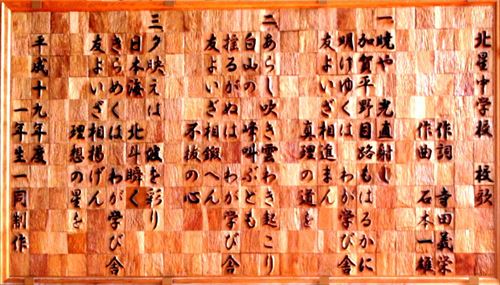 北星中学校 校歌
作詞 寺田義栄
作曲 石本一雄
一 暁や 光直射し
加賀平野目路もはるかに
明けゆくは わが学び舎
友よいざ相進まん
真理の道を
二 あらし吹き雲わき起こり
白山の 峰叫ぶとも
揺るがぬは わが学び舎
友よいざ相鍛へん
不抜の心
三 夕映えは 波を彩り
日本海 北斗瞬く
きらめくは わが学び舎
友よいざ相揚げん
理想の星を
平成十九年度
一年生一同制作